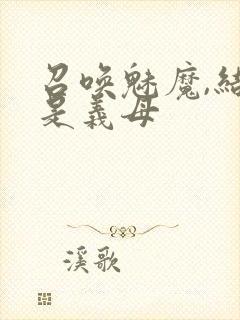 召唤魅魔,结
是义母
溪歌